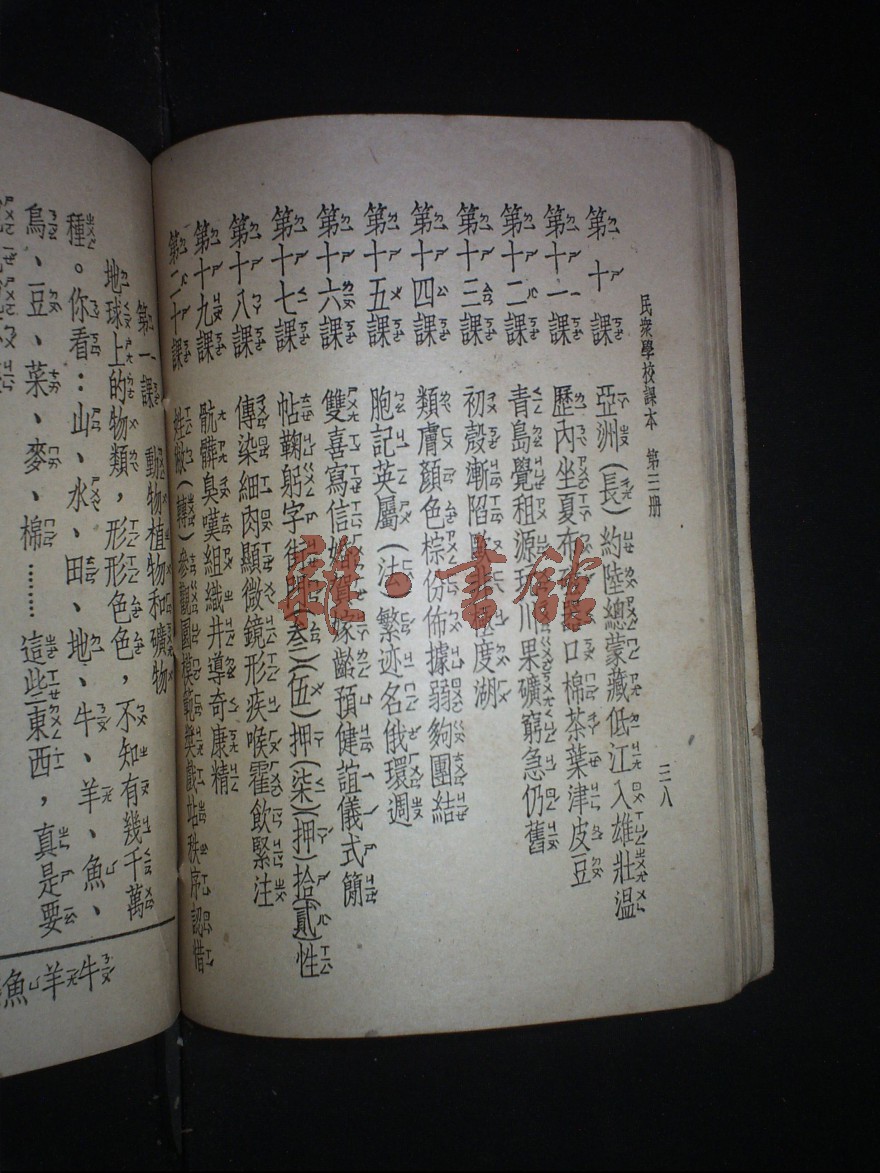 民眾學校課本　第三册
三八
第十課　亞洲（長）約陸總蒙藏低江入雄壯溫
第十一課　歷內坐夏布　器口棉茶葉津皮豆
第十二課　青島覺租源　川果礦窮急仍舊
第十三課　初殼漸陷　程度湖
第十四課　類膚顏色棕份佈據弱夠團結
第十五課　胞記英屬（法）繁迹名俄環週
第十六課　雙喜寫信　嫁齡預健誼儀式簡
第十七課　帖鞠躬字街　（叁）（伍）押（柒）（押）拾（貳）性
第十八課　傳染細肉顯微鏡形疾喉霍飲緊注
第十九課　骯髒臭嘆組織井導奇康精
第二十課　（轉）參觀園模範獎勸站秩序認惜
第一課　動物植物和礦物
地球上的物類，形形色色，不知有幾千萬
種。你看：山、水、田、地、牛、羊、魚、
鳥、豆、菜、麥、棉………這些東西，真是要
牛羊魚
雅·書館